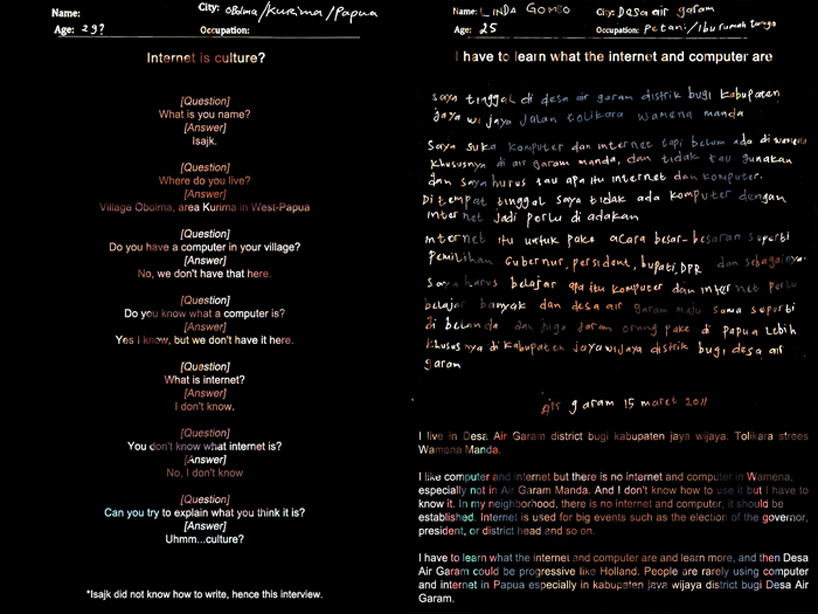 Name:
City: Obolma/Kurima/Papua
Age: 29?
Occupation:
Internet is culture?
[Question]
What is you name?
[Answer]
Isajk.
[Question]
Where do you live?
[Answer]
Village Obolma, area Kurima in West-Papua
[Question]
Do you have a computer in your village?
[Answer]
No, we don't have that here.
[Question]
Do you know what a computer is?
[Answer]
Yes I know, but we don't have it here.
[Question]
What is internet?
[Answer]
I don't know.
[Question]
You don't know what internet is?
[Answer]
No, I don't know
[Question]
Can you try to explain what you think it is?
[Answer]
Uhmm...culture?
*Isajk did not know how to write, hence this interview.
Name: LINDA GOMBO
City: Desa air garam
Age: 25
Occupation: Petani/Ibu rumah tangga
I have to learn what the internet and computer are
saya tinggal di desa air garam distrik bugi kabupaten
jaya wijaya jalan tolikara wamena manda
Saya suka komputer dan internet tapi belum ada di wamena
khususnya di air garam manda, dan tidak tau gunakan
dan saya harus tau apa itu internet dan komputer.
Di tempat tinggal saya tidak ada komputer dengan
internet jadi perlu di adakan
internet itu untuk pake acara besar-besaran seperti
pemilihan Gubernur, persident, bupati, DPR dan sebagainya.
Saya harus belajar apa itu komputer dan internet perlu
belajar banyak dan desa air garam maju sama seperti
di belanda dan juga jaram orang pake di papua lebih
khususnya di kabupaten jayawijaya distrik bugi desa air
garam
Air garam 15 maret 2011
I live in Desa Air Garam district bugi kabupaten jaya wijaya. Tolikara strees
Wamena Manda.
I like computer and internet but there is no internet and computer in Wamena,
especially not in Air Garam Manda. And I don't know how to use it but I have to
know it. In my neighborhood, there is no internet and computer, it should be
established. Internet is used for big events such as the election of the governor,
president, or district head and so on.
I have to learn what the internet and computer are and learn more, and then Desa
Air Garam could be progressive like Holland. People are rarely using computer
and internet in Papua especially in kabupaten jaya wijaya district bugi Desa Air
Garam.